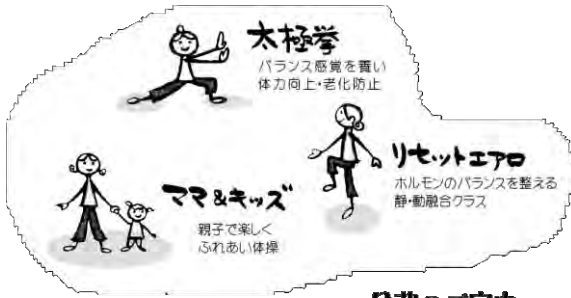 太極拳
バランス感覚を養い
体力向上・老化防止
リセットエアロ
ホルモンのバランスを整える
静・動融合クラス
ママ&キッズ
親子で楽しく
ふれあい体操